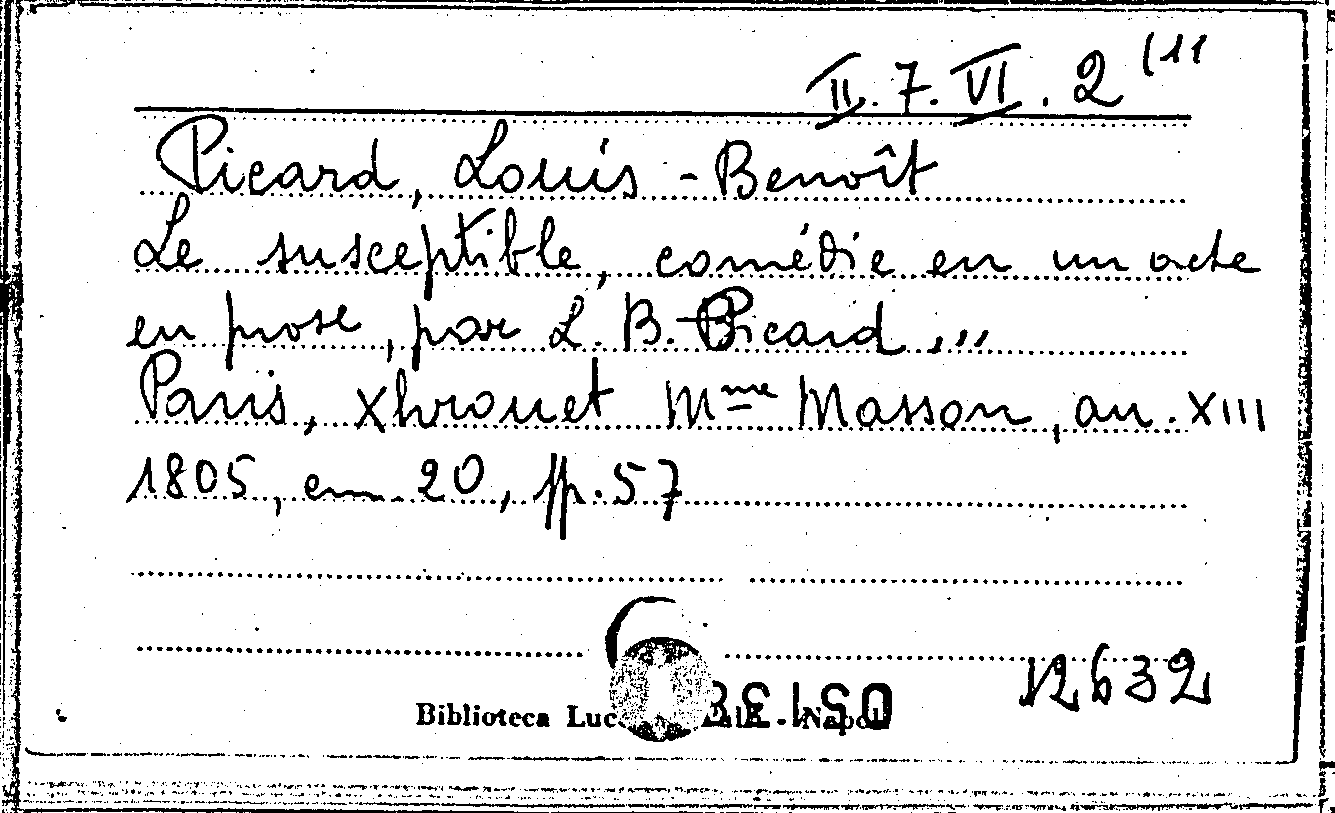 II. 7. VI. 2 (11
Picard, Louis-Benoît
Le susceptible, comédie en un acte
en prose, par L. B. Picard ...
Paris, Xhrouet Mme Masson, an. XIII
1805, cm. 20, pp. 57
12632
Biblioteca - Napoli